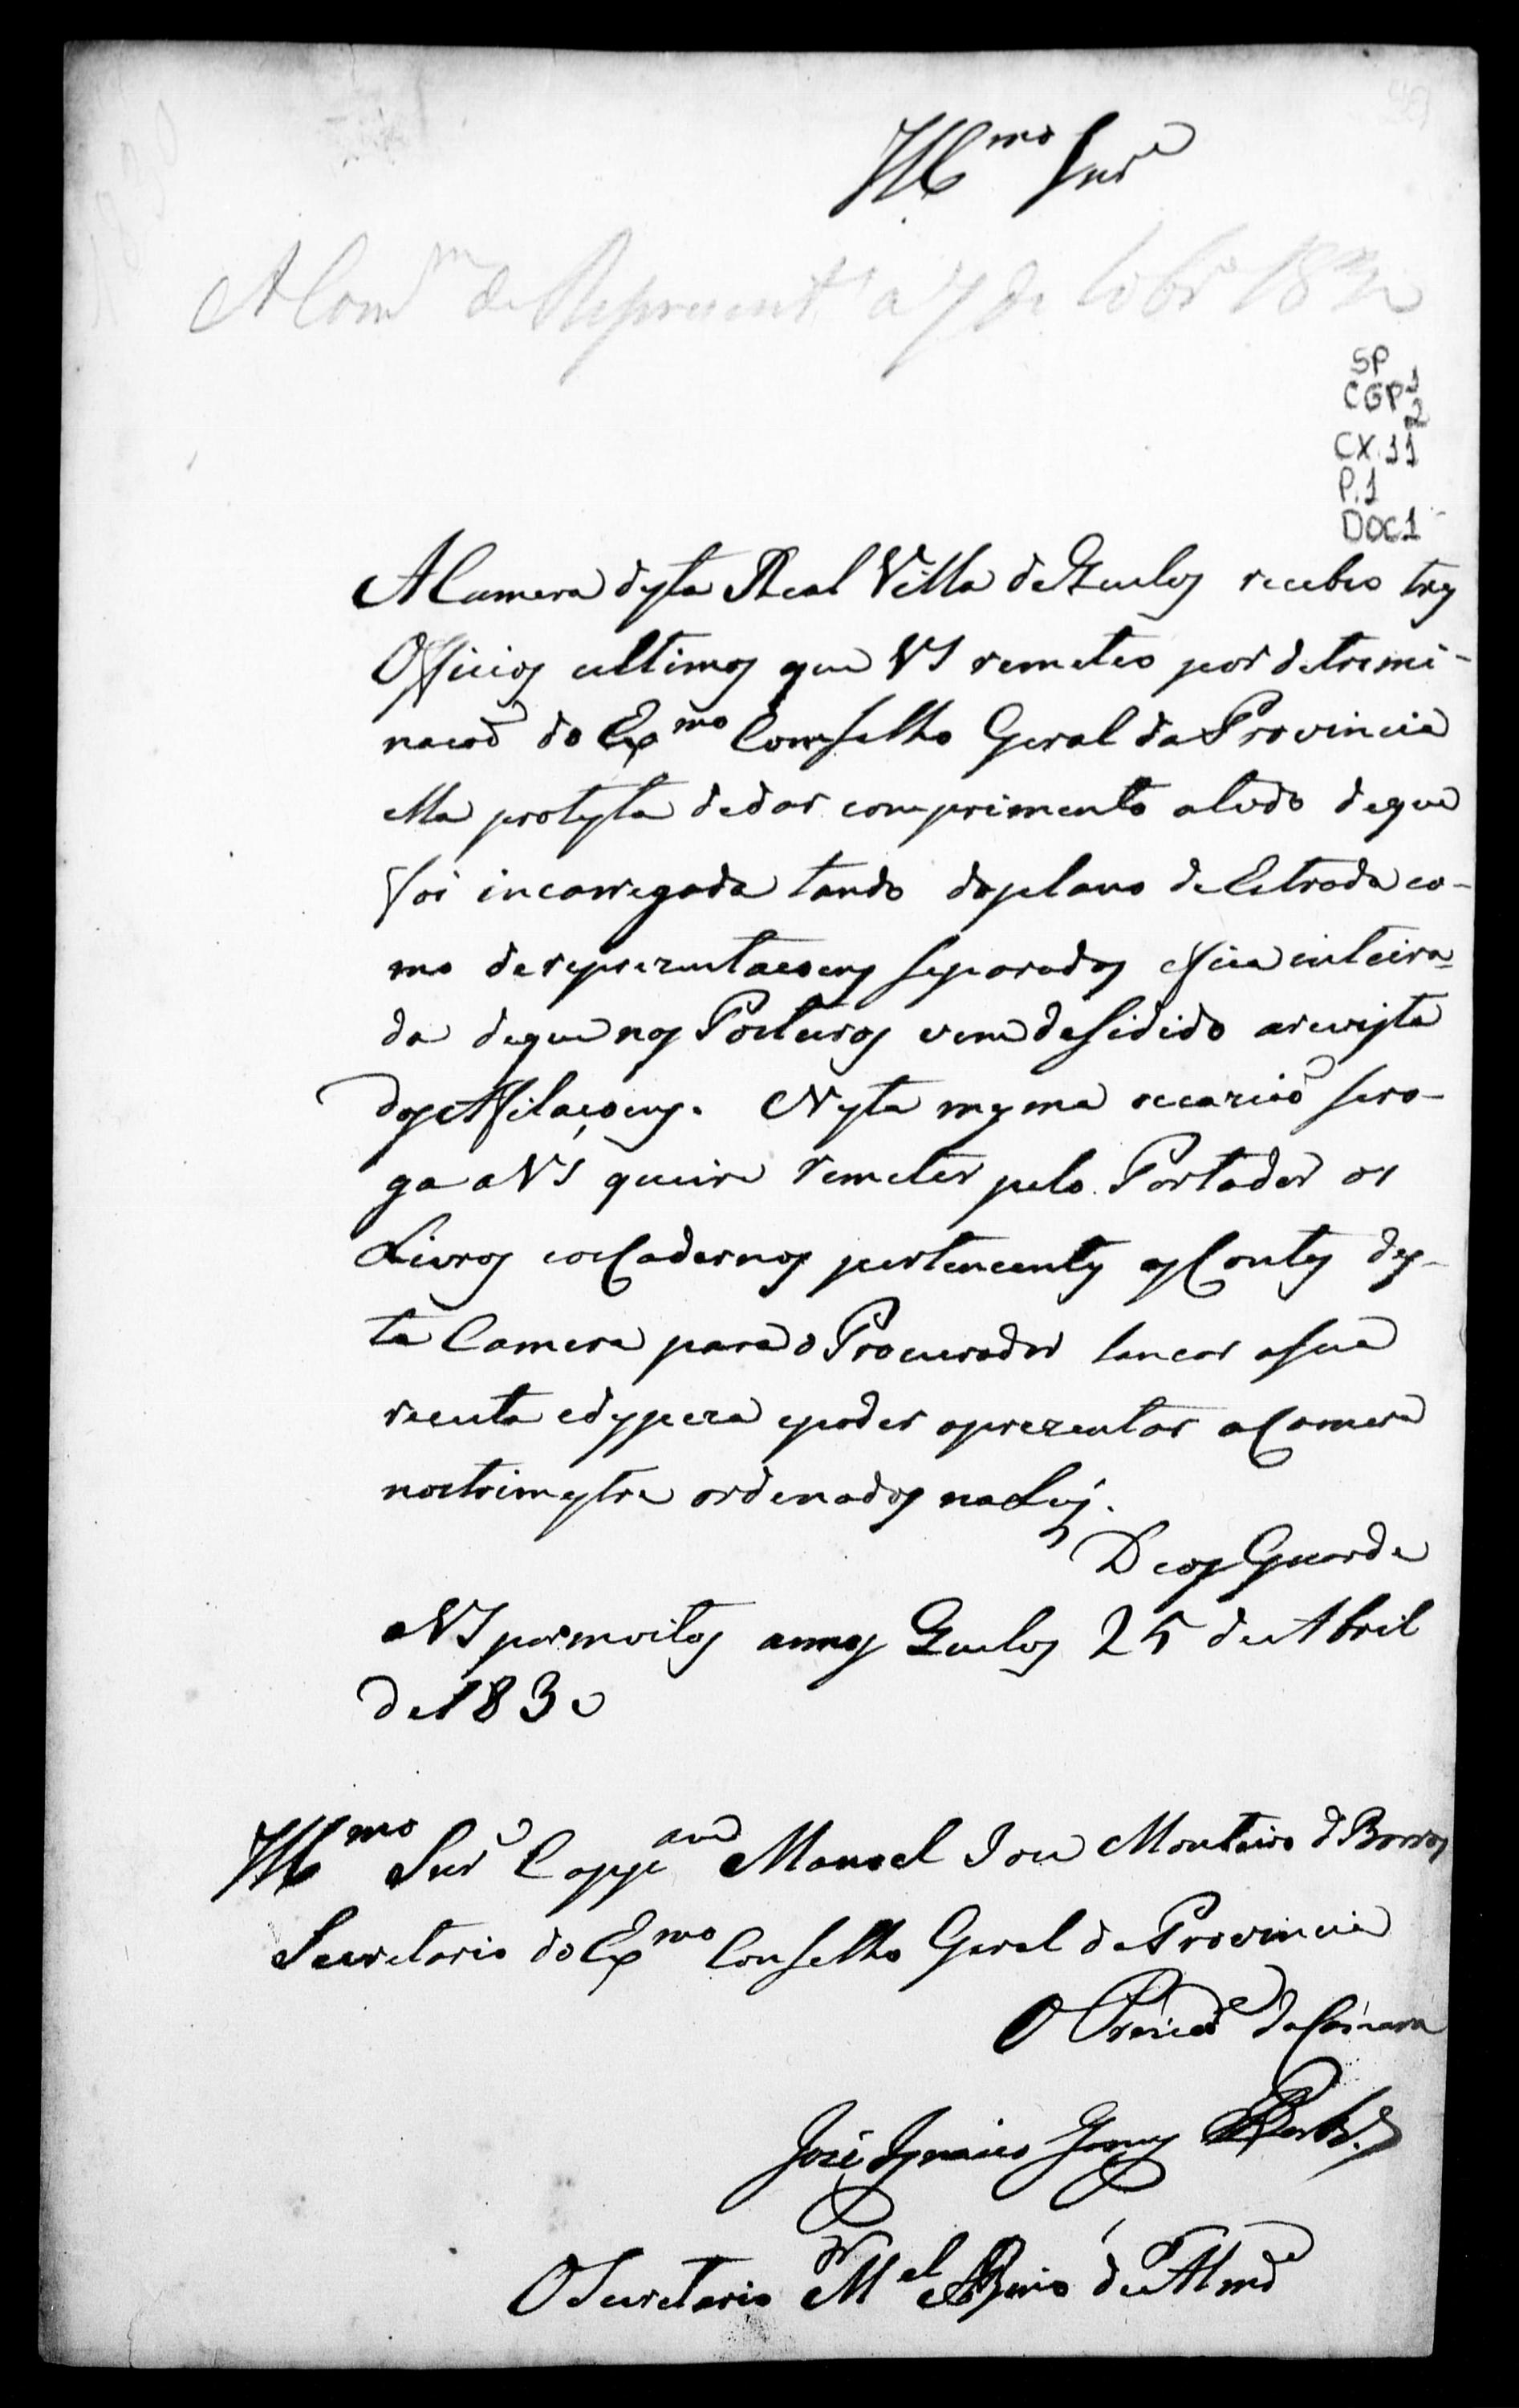 Illmo Snr
A Comm de Represent a 7 de 10br 1830
SP
CGP 1
2
CX. 11
P. 1
DOC 1
A Camera desta Real Villa de Queluz recebeo tres
Officios ultimos que VS remeteo por detremi-
nacaõ do Exmo Comselho Geral da Provincia
ella protesta de dar comprimento atudo deque
foi incarregada tando doplano de Estrada co-
mo dereprezentacoens separados efica inteira-
da deque nos Posturos vem desidido arevista
dos Afilaçoens. Nesta mesma occaziaõ sero-
ga a VS queira remeter pelo Portador os
Livros eos Cadernos pertencentes as Contas des-
ta Camera para o Procurador lancar asua
receita edespeza epoder aprezentar a Camera
nos trimestre ordenados na Ley.
Deos Guarde
a VS por moitos annos Queluz 25 de Abril
de 1830
Illmo Snr Cappam Manoel Jose Monteiro de Barros
Secretario do Exmo Conselho Geral da Provincia
O Prezide da Camara
José Ignacio Gomes Barbza
O Secretario Mel de Almda